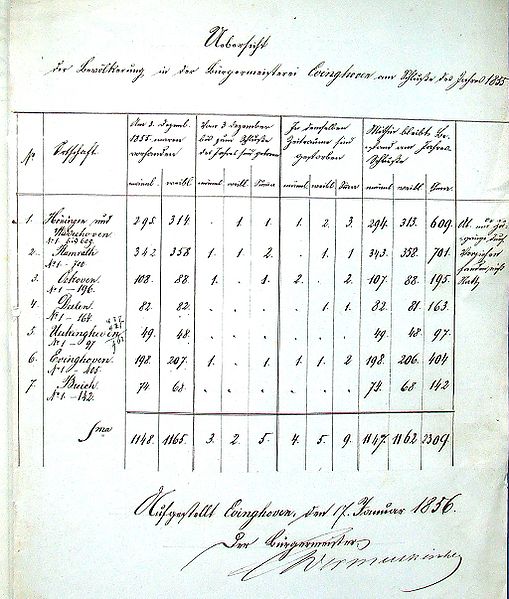 Uebersicht
der Bevölkerung in der Bürgermeisterei Evinghoven am Schluße des Jahres 1855
No Ortschaft. Am 3. Dezemb. 1855 waren vorhanden Vom 3 Dezember bis zum Schluße des Jahres sind geboren In demselben Zeitraume sind gestorben Mithin bleibt Bestand am Jahres Schluße
männl. weibl. männl. weibl. Suma männl. weibl. Suma männl. weibl. Suma
1. Höningen und 295. 314. . 1. 1. 1. 2. 3. 294. 313. 609.
No 1 bis 609.
2. Ramrath 342 358 1. 1. 2. . 1 1 343. 358. 701.
No 1 - 701.
3. Oekoven. 108. 88. 1. . 1. 2. . 2. 107. 88. 195.
No 1 - 196.
4. Deelen 82. 82. . . . . 1 1 82. 81. 163.
No 1 - 164
5. 49. 48. . . . . . . 49. 48. 97.
No 1 - 97
6. Evinghoven. 198. 207. 1. . 1. 1. 1. 2 198. 206. 404
No 1 - 405.
7. Buich 74 68. . . . . . . 74. 68 142
No 1 - 142.
Sma 1148. 1165. 3. 2. 5. 4. 5. 9. 1147. 1162 2309.
Aufgestellt Evinghoven, den 17. Januar 1856.
Der Bürgermeister